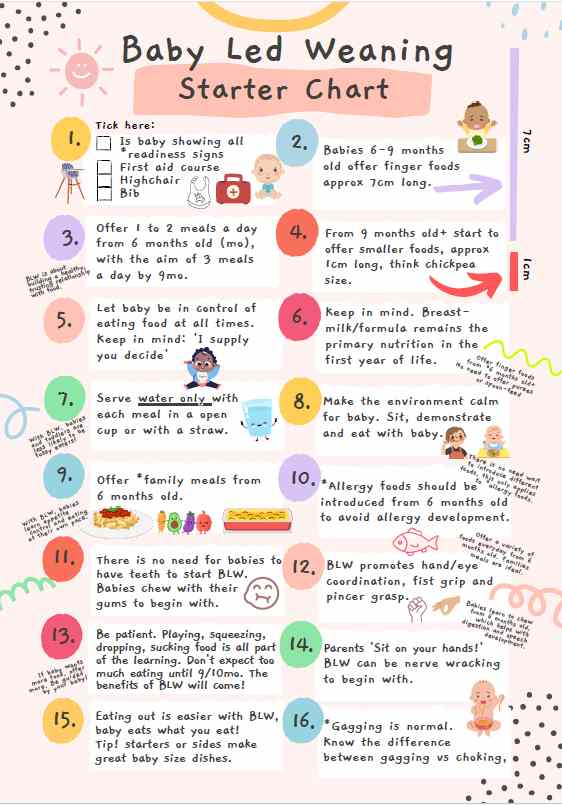 Baby Led Weaning
Starter Chart
Tick here:
1.
Is baby showing all
*readiness signs
First aid course
Highchair
Bib
2.
Babies 6-9 months
old offer finger foods
approx 7cm long.
7cm
3.
Offer 1 to 2 meals a day
from 6 months old (mo),
with the aim of 3 meals
a day by 9mo.
BLW is about
building a healthy,
trusting relationship
with food.
4.
From 9 months old+ start to
offer smaller foods, approx
1cm long, think chickpea
size.
1cm
5.
Let baby be in control of
eating food at all times.
Keep in mind: 'I supply
you decide'
6.
Keep in mind. Breast-
milk/formula remains the
primary nutrition in the
first year of life.
Offer finger foods
from *6 months old+
No need to offer purees
or spoon-feed
7.
Serve water only with
each meal in a open
cup or with a straw.
With BLW, babies
and toddlers are
less likely to be
fussy eaters!
8.
Make the environment calm
for baby. Sit, demonstrate
and eat with baby.
9.
Offer *family meals from
6 months old.
With BLW, babies
learn appetite
control and eating
at their own pace.
There is no need wait
to introduce different
foods, this only applies
to *allergy foods.
10.
*Allergy foods should be
introduced from 6 months old
to avoid allergy development.
Offer a variety of
foods everyday from 6
months old. Families
meals are ideal.
11.
There is no need for babies to
have teeth to start BLW.
Babies chew with their
gums to begin with.
12.
BLW promotes hand/eye
coordination, fist grip and
pincer grasp.
Babies learn to chew
from 6 months old,
which helps with
digestion and speech
development.
13.
Be patient. Playing, squeezing,
dropping, sucking food is all part
of the learning. Don't expect too
much eating until 9/10mo. The
benefits of BLW will come!
If baby wants
more food, offer
more. Be guided
by your baby!
14.
Parents 'Sit on your hands!'
BLW can be nerve wracking
to begin with.
15.
Eating out is easier with BLW,
baby eats what you eat!
Tip! starters or sides make
great baby size dishes.
16.
*Gagging is normal.
Know the difference
between gagging vs choking,